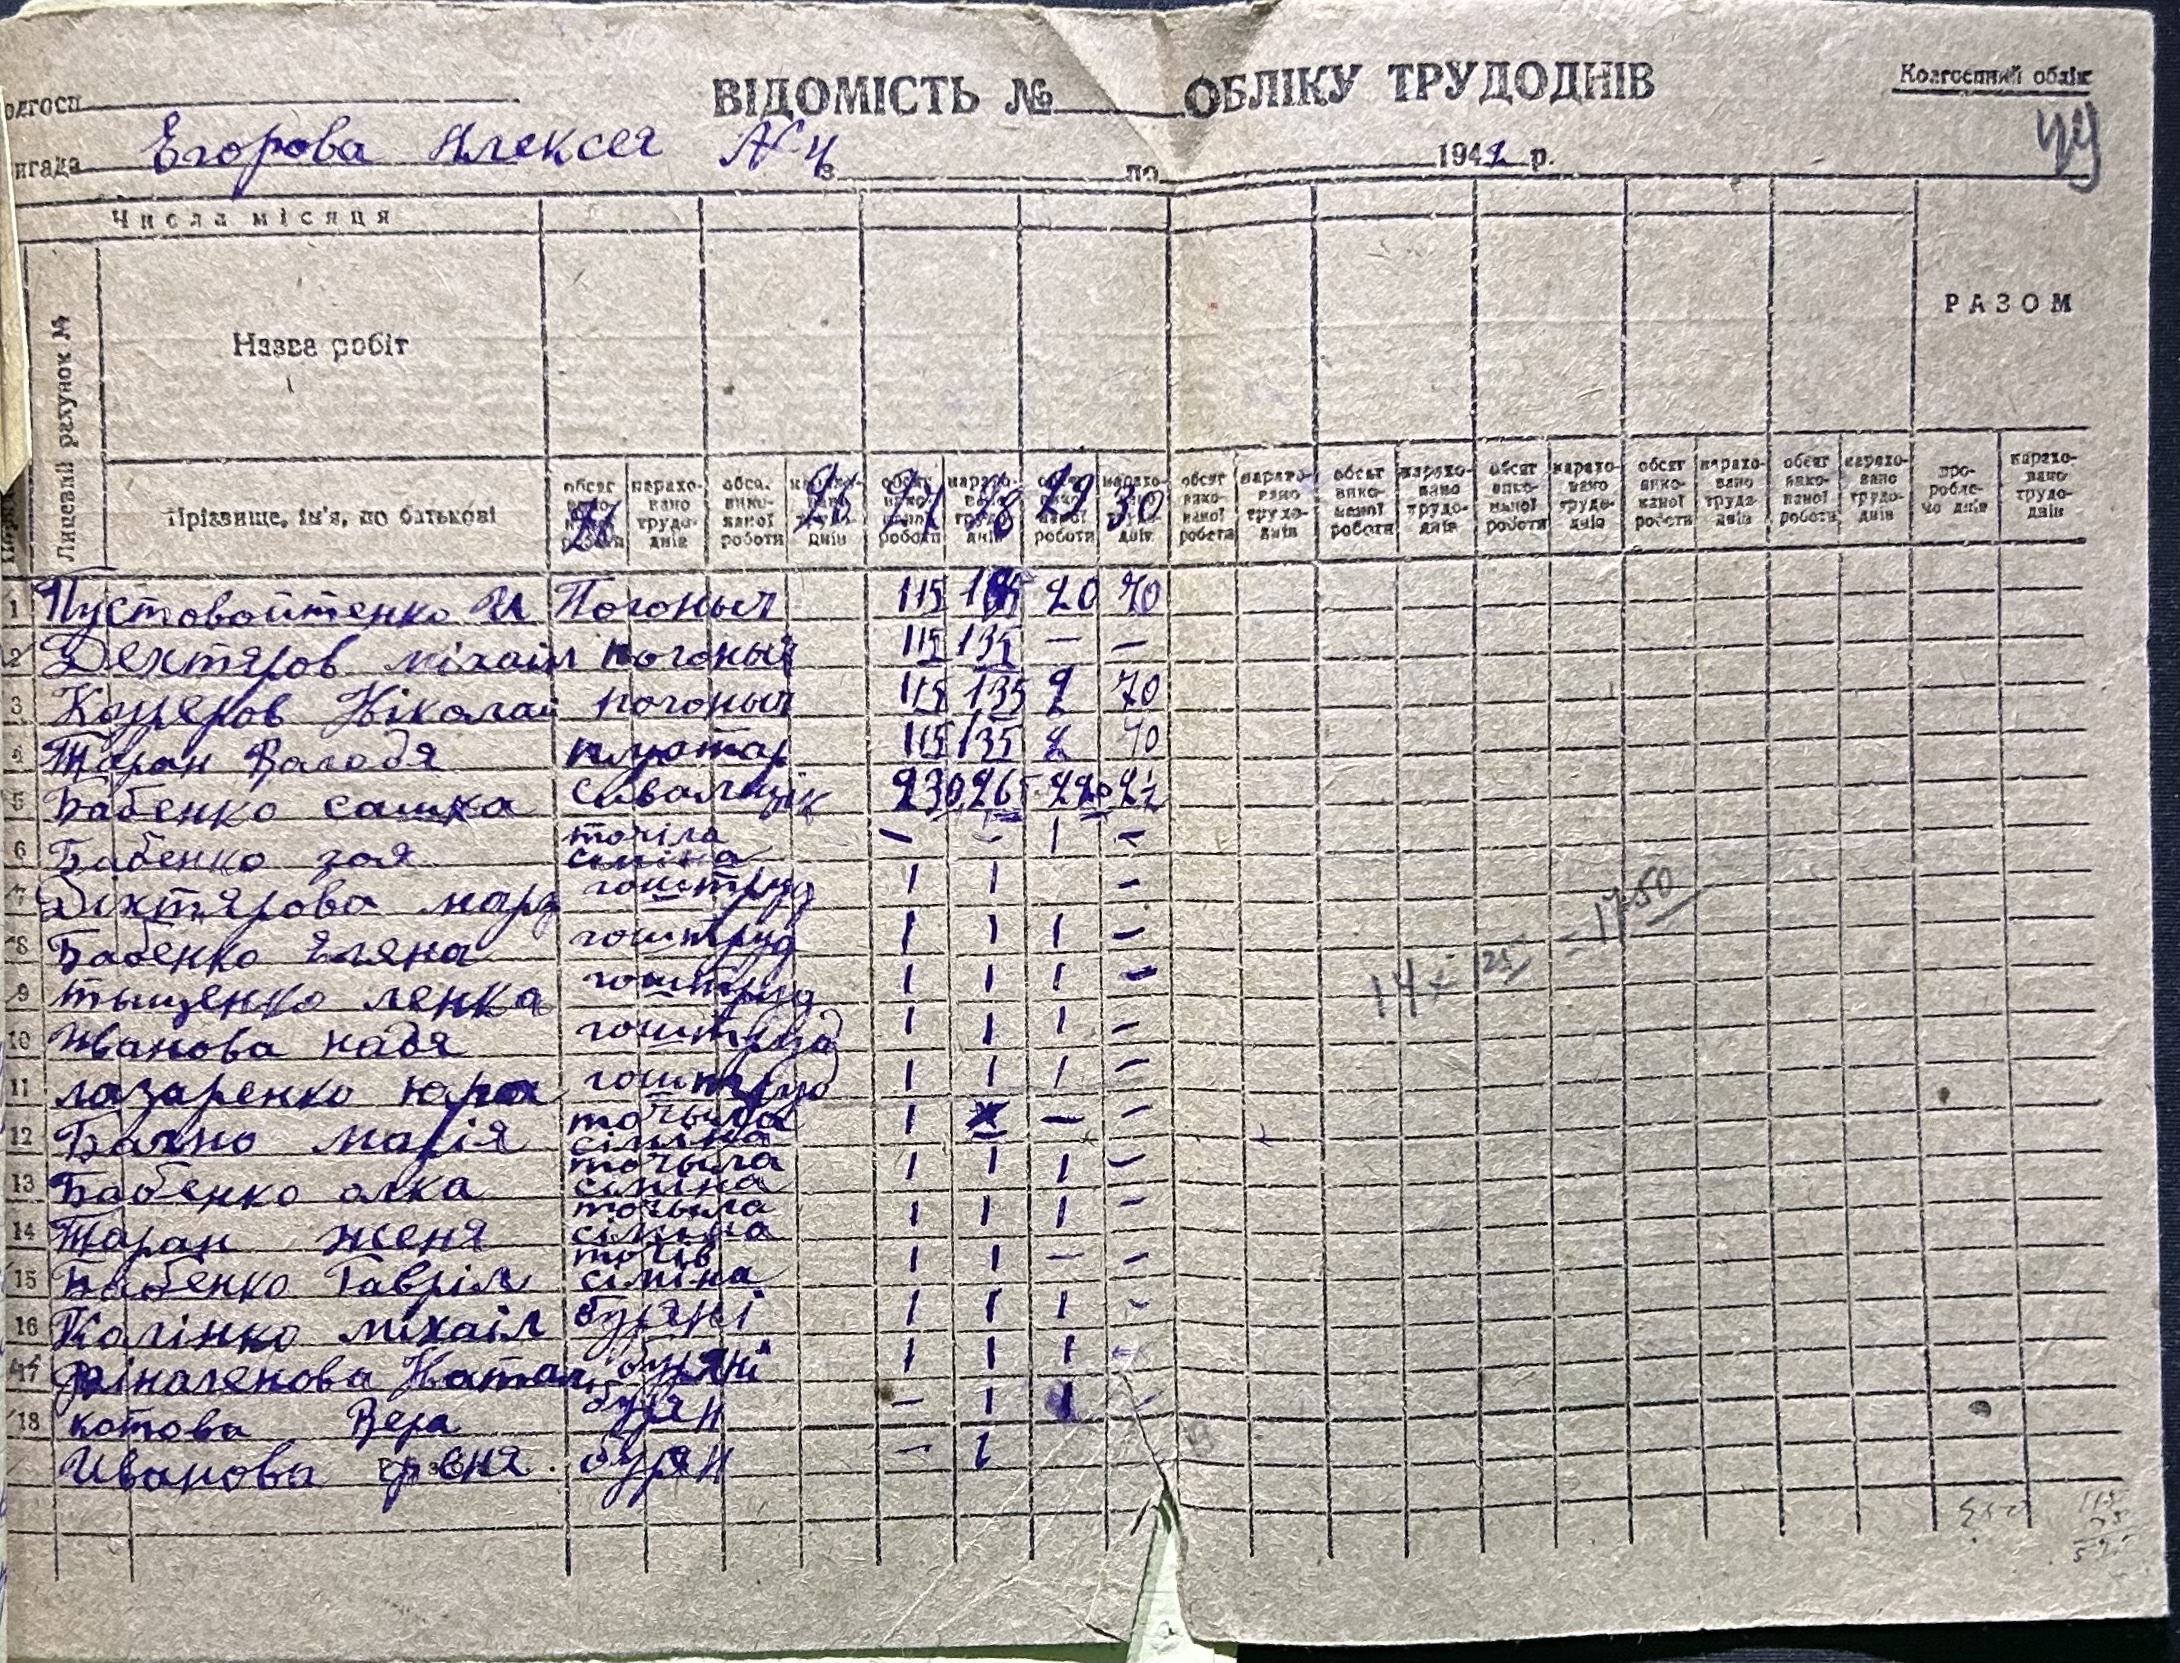 ВІДОМІСТЬ № ОБЛІКУ ТРУДОДНІВ
Колгоспний облік
44
олгосп
игада Егорова Алексея № 4 з по 1942 р.
Числа місяця
РАЗОМ
Назва робіт
Лицевий рахунок №
Прізвище, ім'я, по батькові
обсяг виконаної роботи нарахо-вано трудо-днів обсяг вико-наної роботи нарахо-вано трудо-днів обсяг вико-наної роботи нарахо-вано трудо-днів обсяг вико-наної роботи нарахо-вано трудо-днів обсяг вико-наної роботи нарахо-вано трудо-днів обсяг вико-наної роботи нарахо-вано трудо-днів обсяг вико-наної роботи нарахо-вано трудо-днів обсяг вико-наної роботи нарахо-вано трудо-днів обсяг вико-наної роботи нарахо-вано трудо-днів про-робле-но днів нарахо-вано трудо-днів
26 27 28 29 30
1 Пустовойтенко И Погоныч 115 20 70
2 Дехтяров міхаіл погоныч 115 135 — —
3 Ніколай погоныч 115 135 2 70
4 Таран Валодя плуотар 115 135 2 70
5 Бабенко сашка 230 265 220
6 Бабенко зоя точіла сіміна - - 1 -
7 Діхтярова гоштруд 1 1 -
8 Бабенко Еляна гоштруд 1 1 1 -
9 тыщенко ленка гоштруд 1 1 1 -
10 Иванова надя гоштруд 1 1 1 -
11 лазаренко юра гоштруд 1 1 1 -
12 марія точыла сіміна 1 х — -
13 Бабенко алка точыла сіміна 1 1 1 -
14 Таран женя точыла сіміна 1 1 1 -
15 Бабенко Гавріл точів сіміна 1 1 — -
16 Калінко міхаіл буряні 1 1 1 -
17 Натал буряні 1 1 1
18 котова Вера бурян — 1 1 -
Иванова бурян — 1
14 × 125 – 1750